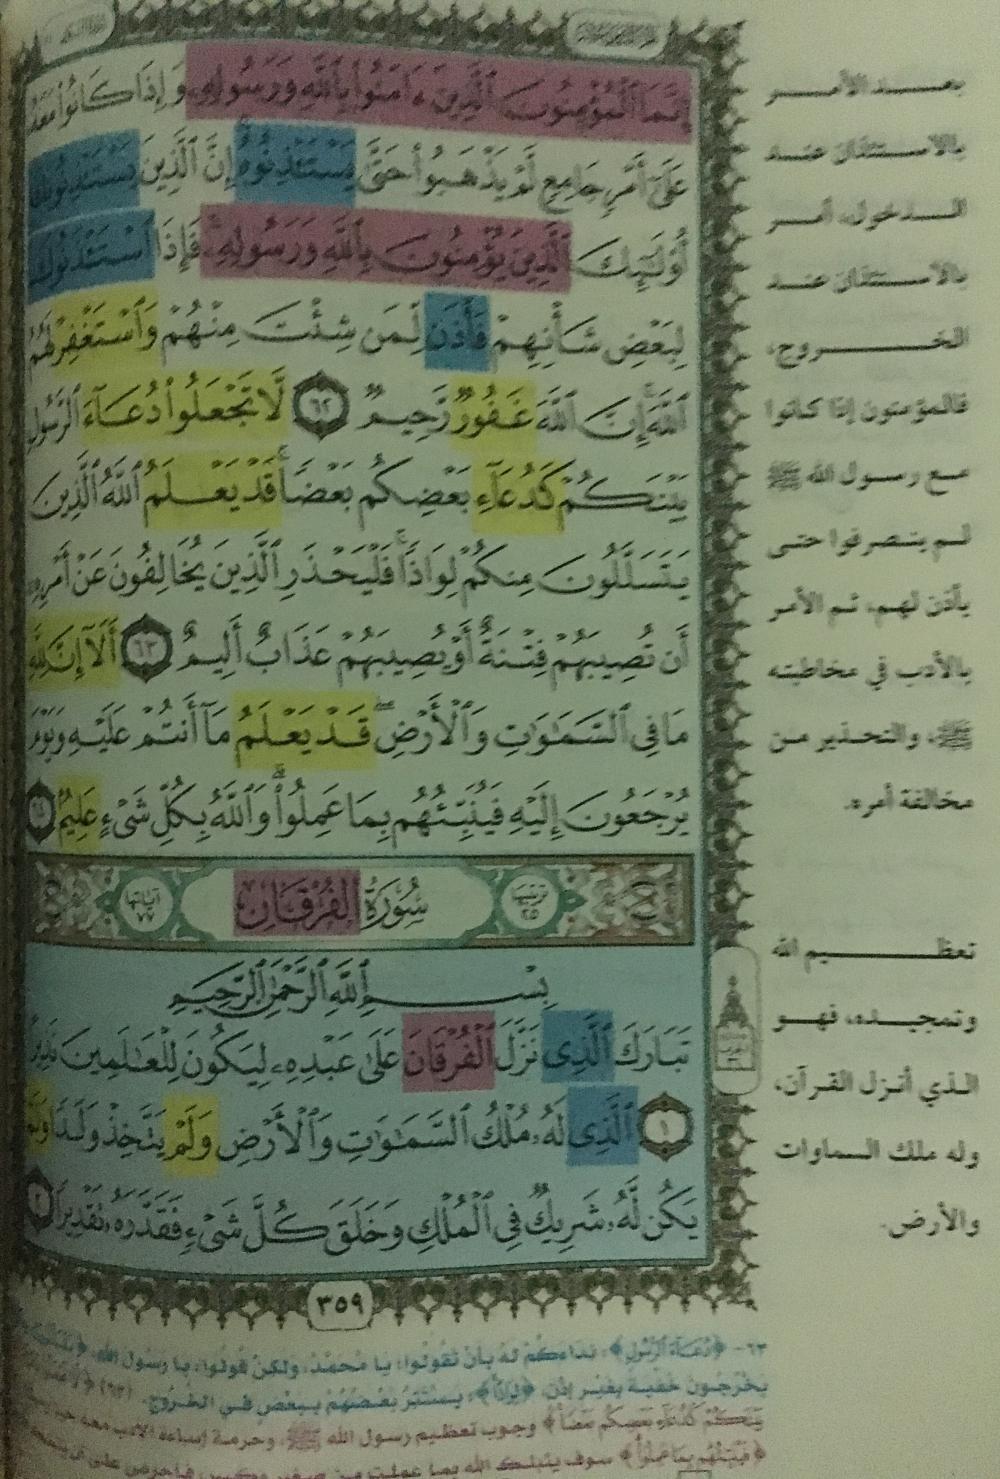 إِنَّمَا ٱلْمُؤْمِنُونَ ٱلَّذِينَ ءَامَنُوا۟ بِٱللَّهِ وَرَسُولِهِۦ وَإِذَا كَانُوا۟ مَعَهُۥ
عَلَىٰٓ أَمْرٍ جَامِعٍ لَّمْ يَذْهَبُوا۟ حَتَّىٰ يَسْتَـْٔذِنُوهُ ۚ إِنَّ ٱلَّذِينَ يَسْتَـْٔذِنُونَكَ
أُو۟لَـٰٓئِكَ ٱلَّذِينَ يُؤْمِنُونَ بِٱللَّهِ وَرَسُولِهِۦ ۚ فَإِذَا ٱسْتَـْٔذَنُوكَ
لِبَعْضِ شَأْنِهِمْ فَأْذَن لِّمَن شِئْتَ مِنْهُمْ وَٱسْتَغْفِرْ لَهُمُ
ٱللَّهَ ۚ إِنَّ ٱللَّهَ غَفُورٌ رَّحِيمٌ ٦٢ لَّا تَجْعَلُوا۟ دُعَآءَ ٱلرَّسُولِ
بَيْنَكُمْ كَدُعَآءِ بَعْضِكُم بَعْضًا ۚ قَدْ يَعْلَمُ ٱللَّهُ ٱلَّذِينَ
يَتَسَلَّلُونَ مِنكُمْ لِوَاذًا ۚ فَلْيَحْذَرِ ٱلَّذِينَ يُخَالِفُونَ عَنْ أَمْرِهِۦٓ
أَن تُصِيبَهُمْ فِتْنَةٌ أَوْ يُصِيبَهُمْ عَذَابٌ أَلِيمٌ ٦٣ أَلَآ إِنَّ لِلَّهِ
مَا فِى ٱلسَّمَـٰوَٰتِ وَٱلْأَرْضِ ۖ قَدْ يَعْلَمُ مَآ أَنتُمْ عَلَيْهِ وَيَوْمَ
يُرْجَعُونَ إِلَيْهِ فَيُنَبِّئُهُم بِمَا عَمِلُوا۟ ۗ وَٱللَّهُ بِكُلِّ شَىْءٍ عَلِيمٌۢ ٦٤
سُورَةُ الفُرْقَانِ
ترتيبها ٢٥
آياتها ٧٧
بِسْمِ ٱللَّهِ ٱلرَّحْمَـٰنِ ٱلرَّحِيمِ
تَبَارَكَ ٱلَّذِى نَزَّلَ ٱلْفُرْقَانَ عَلَىٰ عَبْدِهِۦ لِيَكُونَ لِلْعَـٰلَمِينَ نَذِيرًا
١ ٱلَّذِى لَهُۥ مُلْكُ ٱلسَّمَـٰوَٰتِ وَٱلْأَرْضِ وَلَمْ يَتَّخِذْ وَلَدًا وَلَمْ
يَكُن لَّهُۥ شَرِيكٌ فِى ٱلْمُلْكِ وَخَلَقَ كُلَّ شَىْءٍ فَقَدَّرَهُۥ تَقْدِيرًا ٢
٣٥٩
بعد الأمر
بالاستئذان عند
الدخول، أمر
بالاستئذان عند
الخروج،
فالمؤمنون إذا كانوا
مع رسول الله ﷺ
لم ينصرفوا حتى
يأذن لهم، ثم الأمر
بالأدب في مخاطبته
ﷺ، والتحذير من
مخالفة أمره.
تعظيم الله
وتمجيده، فهو
الذي أنزل القرآن،
وله ملك السماوات
والأرض.
٦٣- ﴿دُعَآءَ ٱلرَّسُولِ﴾: نداءكم له بأن تقولوا: يا محمد، ولكن قولوا: يا رسول الله،
يخرجون خفية بغير إذن، ﴿لِوَاذًا﴾: يستتر بعضهم ببعض في الخروج. (٦٣)
بَيْنَكُمْ كَدُعَآءِ بَعْضِكُم بَعْضًا﴾ وجوب تعظيم رسول الله ﷺ، وحرمة إساءة الأدب معه
﴿فَيُنَبِّئُهُم بِمَا عَمِلُوا۟﴾ سوف ينبئك الله بما عملت من صغير وكبير، فاحرص على